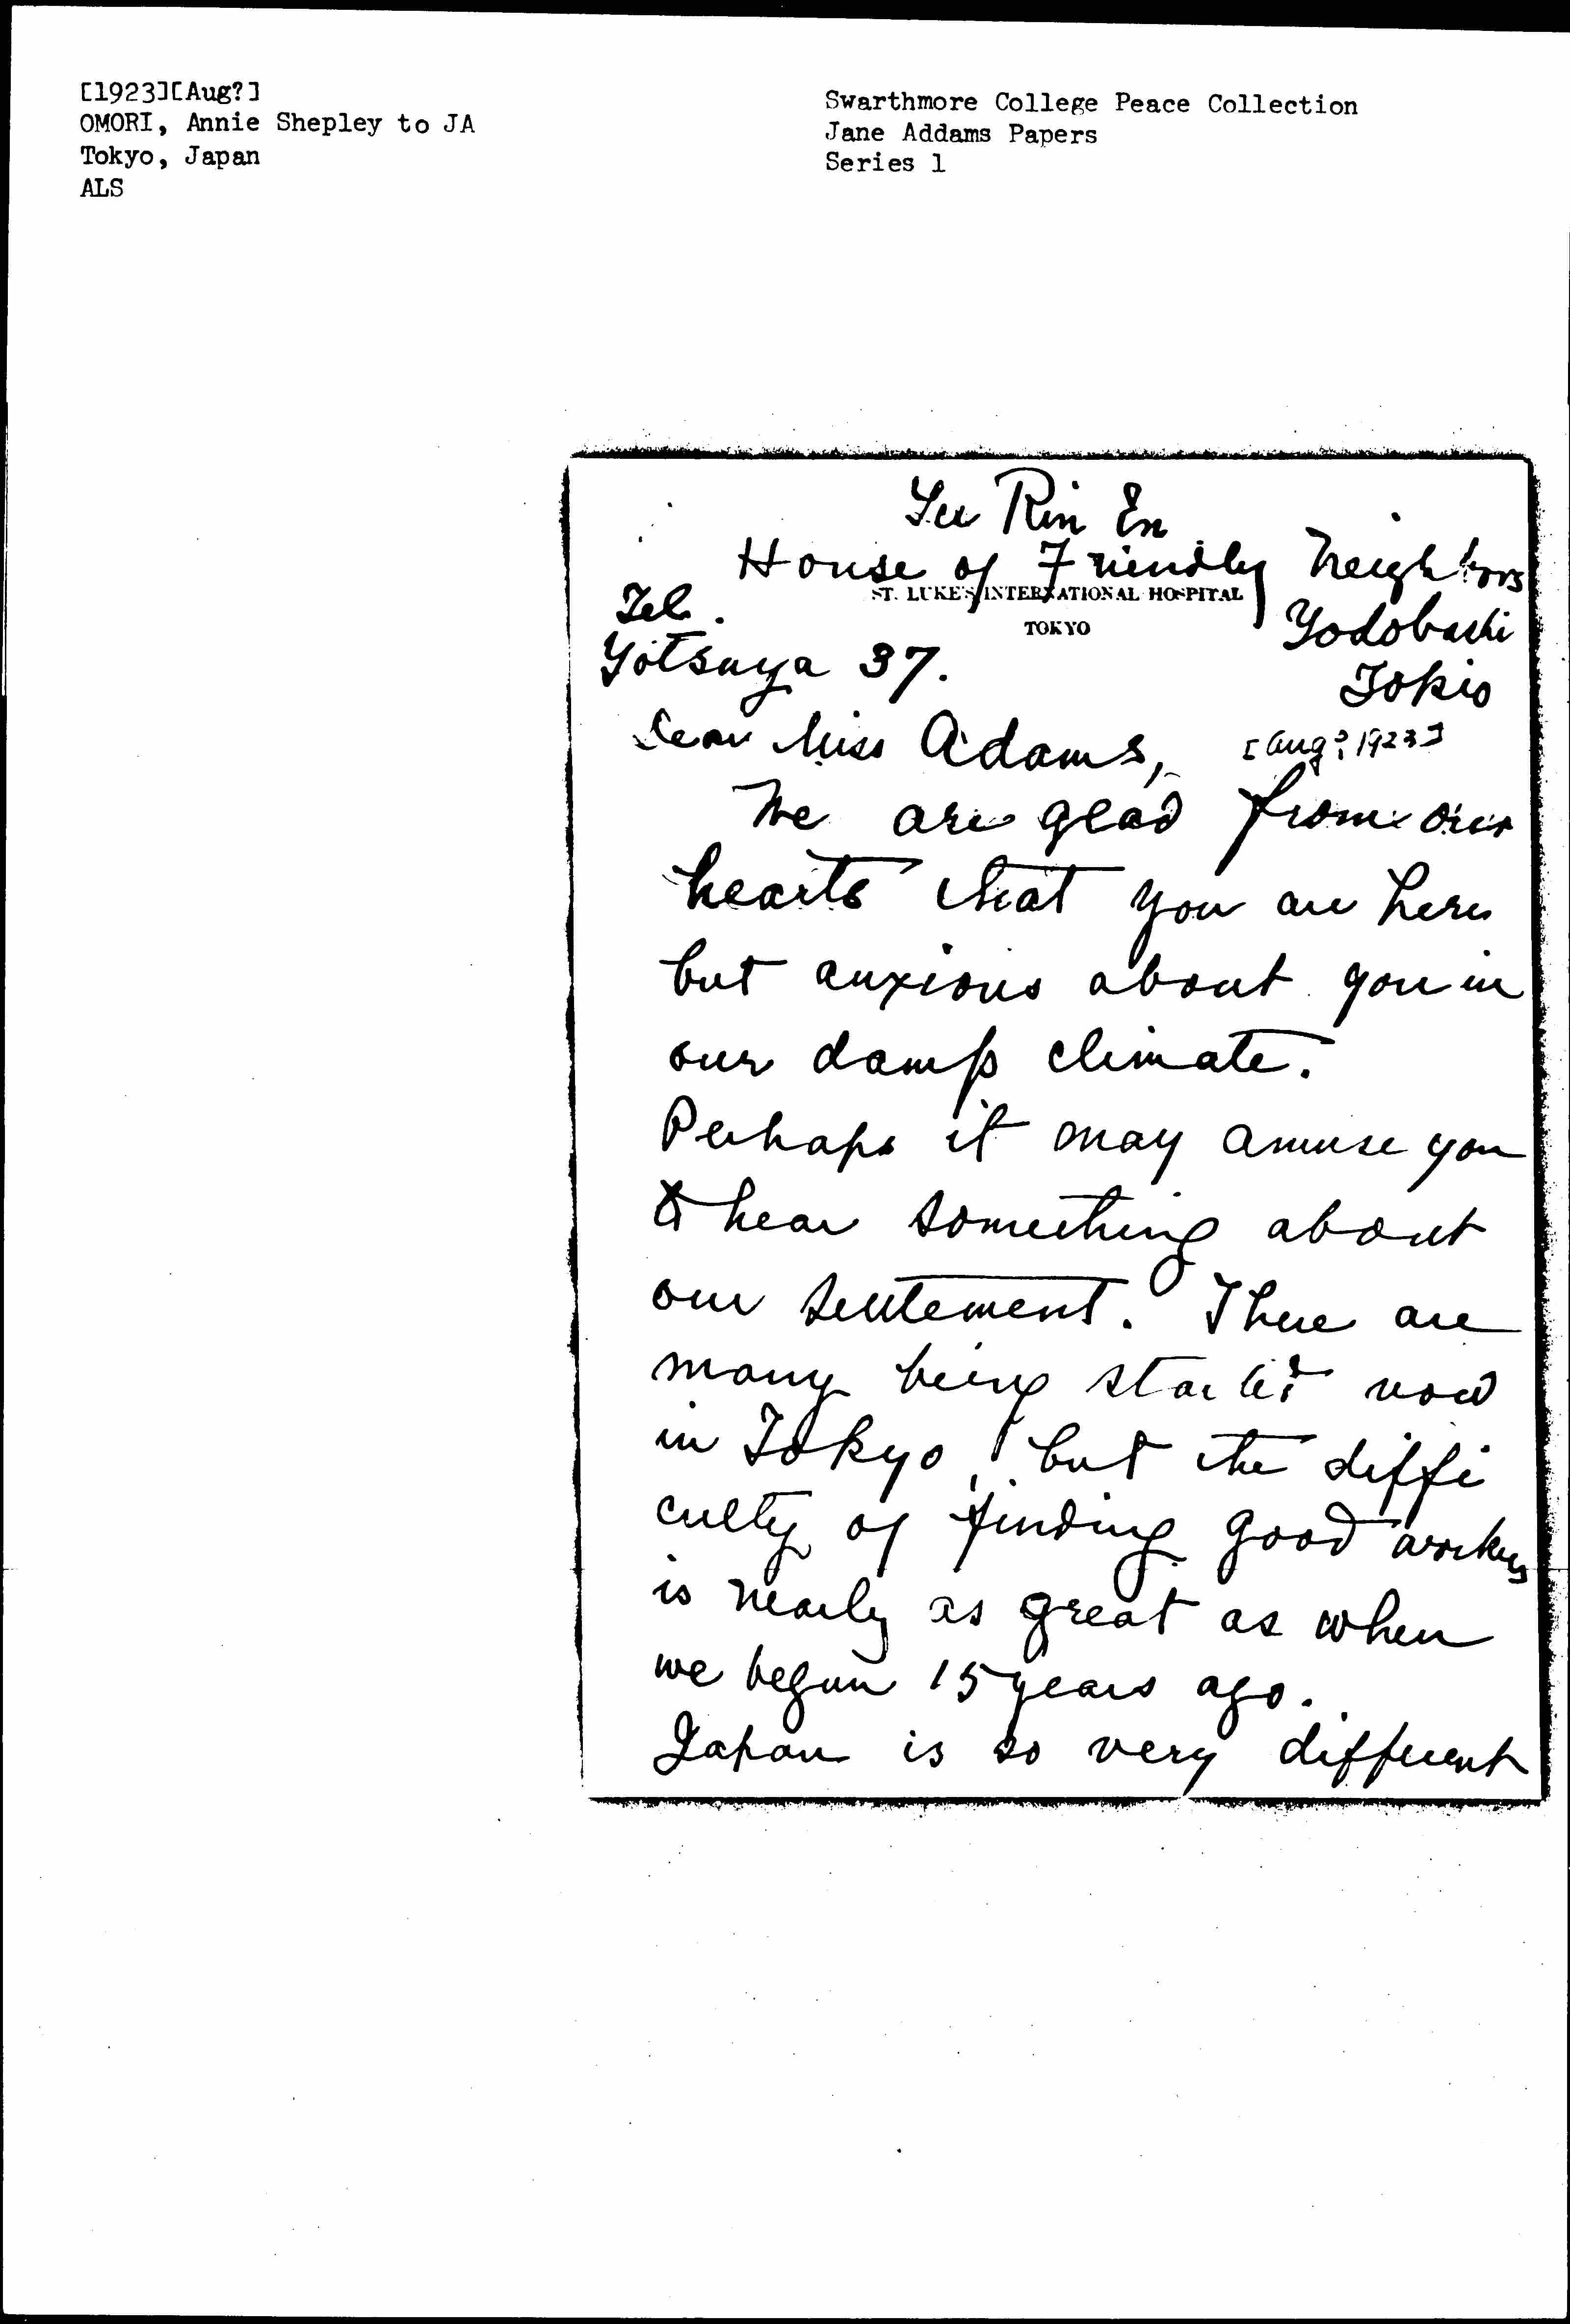 [1923][Aug?]
OMORI, Annie Shepley to JA
Tokyo, Japan
ALS
Swarthmore College Peace Collection
Jane Addams Papers
Series 1
Yu Rin En
House of Friendly Neighbors
ST. LUKE'S INTERNATIONAL HOSPITAL
TOKYO
Tel.
Yotsuya 37.
Yodobashi
Tokio
Dear Miss Adams,
[Aug? 1923]
We are glad from our
hearts that you are here
but anxious about you in
our damp climate.
Perhaps it may amuse you
to hear something about
our settlement. There are
many being started now
in Tokyo, but the diffi
culty of finding good workers
is nearly as great as when
we begun 15 years ago.
Japan is so very different